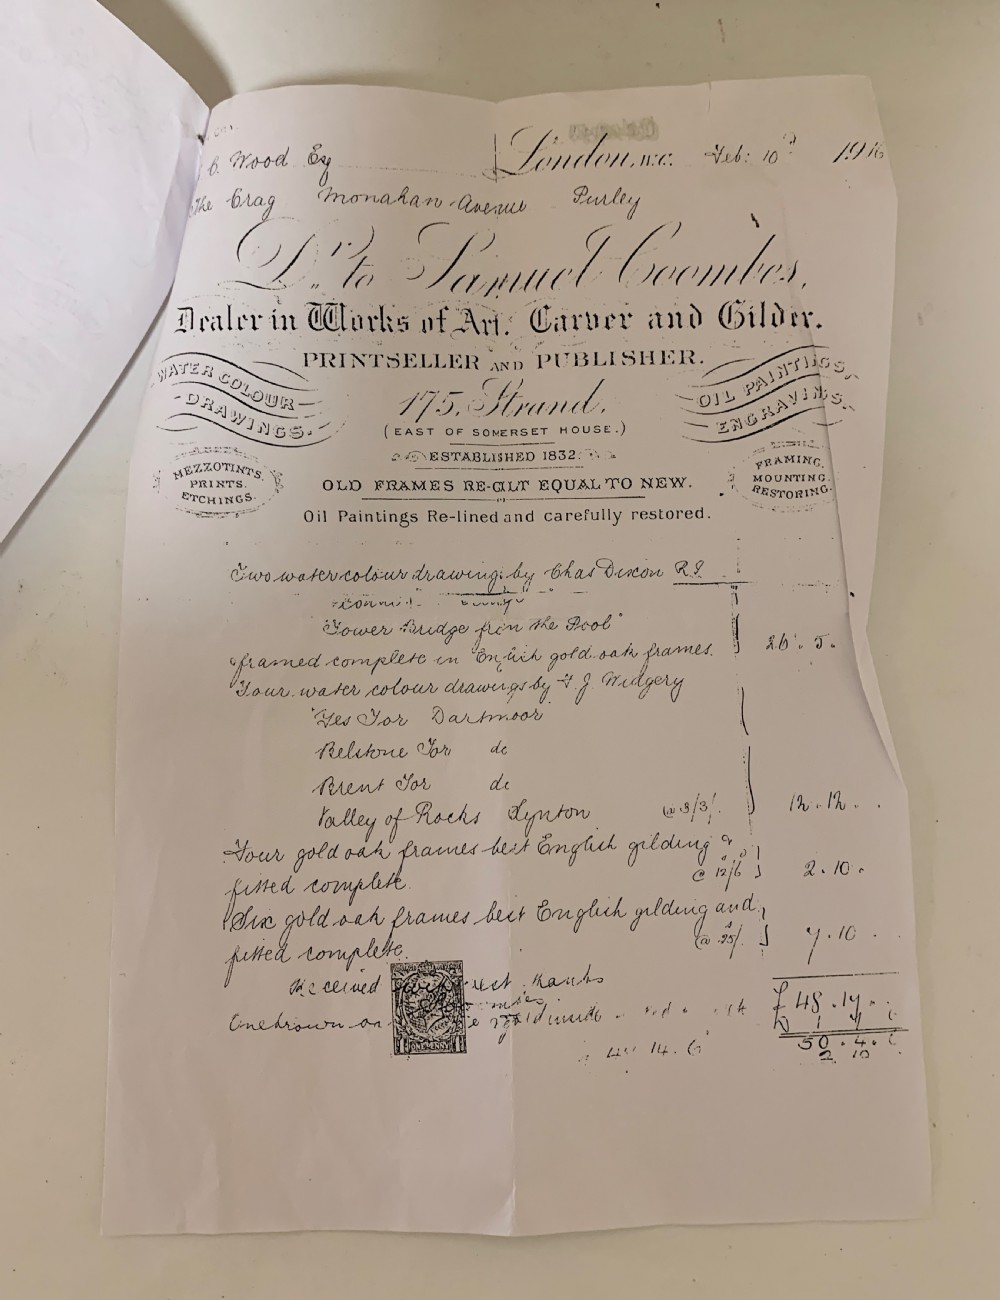 C. Wood Esq London, W.C. Feb: 10 1916
The Crag Monahan Avenue Purley
Dr. to Samuel Coombes,
Dealer in Works of Art. Carver and Gilder.
PRINTSELLER AND PUBLISHER.
WATER COLOUR
DRAWINGS.
175, Strand,
(EAST OF SOMERSET HOUSE.)
OIL PAINTINGS,
ENGRAVINGS.
MEZZOTINTS.
PRINTS.
ETCHINGS.
ESTABLISHED 1832.
FRAMING.
MOUNTING.
RESTORING.
OLD FRAMES RE-GILT EQUAL TO NEW.
Oil Paintings Re-lined and carefully restored.
Two water colour drawings by Chas Dixon R I
"Tower Bridge from the Pool"
framed complete in English gold oak frames. 26. 5.
Four water colour drawings by F. J. Widgery
Yes Tor Dartmoor
Belstone Tor do
Brent Tor do
Valley of Rocks Lynton @ 3/3/. 12. 12. .
Four gold oak frames best English gilding &
fitted complete @ 12/6 2. 10.
Six gold oak frames best English gilding and
fitted complete. @ 25/. 7. 10 .
Received thanks £48. 17.
One brown
ONE PENNY
14. 6 50. 4.
2. 10